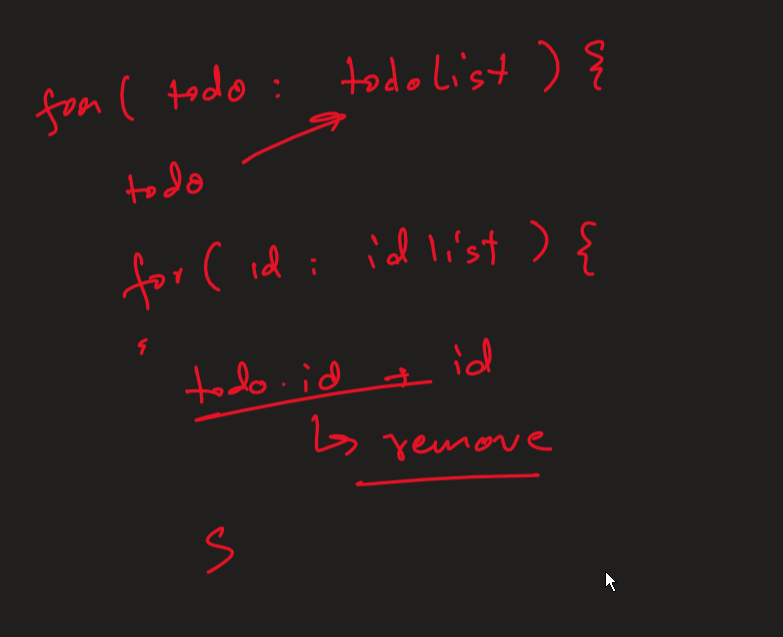 for( todo : todoList ) {
todo
for( id : idlist ) {
todo.id → id
↳ remove
S